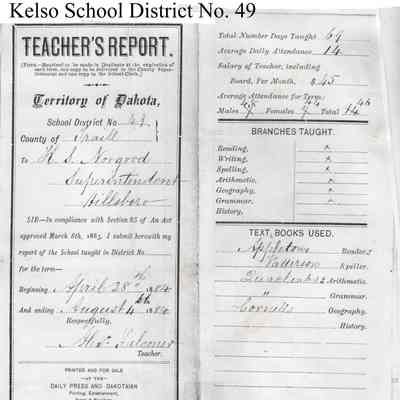 Kelso School District No. 49
TEACHER'S REPORT.
Territory of Dakota,
School District No. 49
County of Traill
To K. S. Norgood
Superintendent
Hillsboro
SIR—In compliance with Section 85 of An Act
approved March 8th, 1883, I submit herewith my
report of the School taught in District No
for the term—
Beginning April 28th 1884
And ending August 4th 1884
Respectfully,
Teacher.
PRINTED AND FOR SALE
—AT THE—
DAILY PRESS AND DAKOTAIAN
Printing Establishment,
Total Number Days Taught 69
Average Daily Attendance 14
Salary of Teacher, including
Board, Per Month, $45
Average Attendance for Term:
Males Females Total 14
BRANCHES TAUGHT.
Reading, x
Writing, x
Spelling, x
Arithmetic. x
Geography, x
Grammar. x
History,
TEXT BOOKS USED.
Appletons Reader,
Patterson Speller.
Quackenbos Arithmetic.
" Grammar.
Cornells Geography,
History.